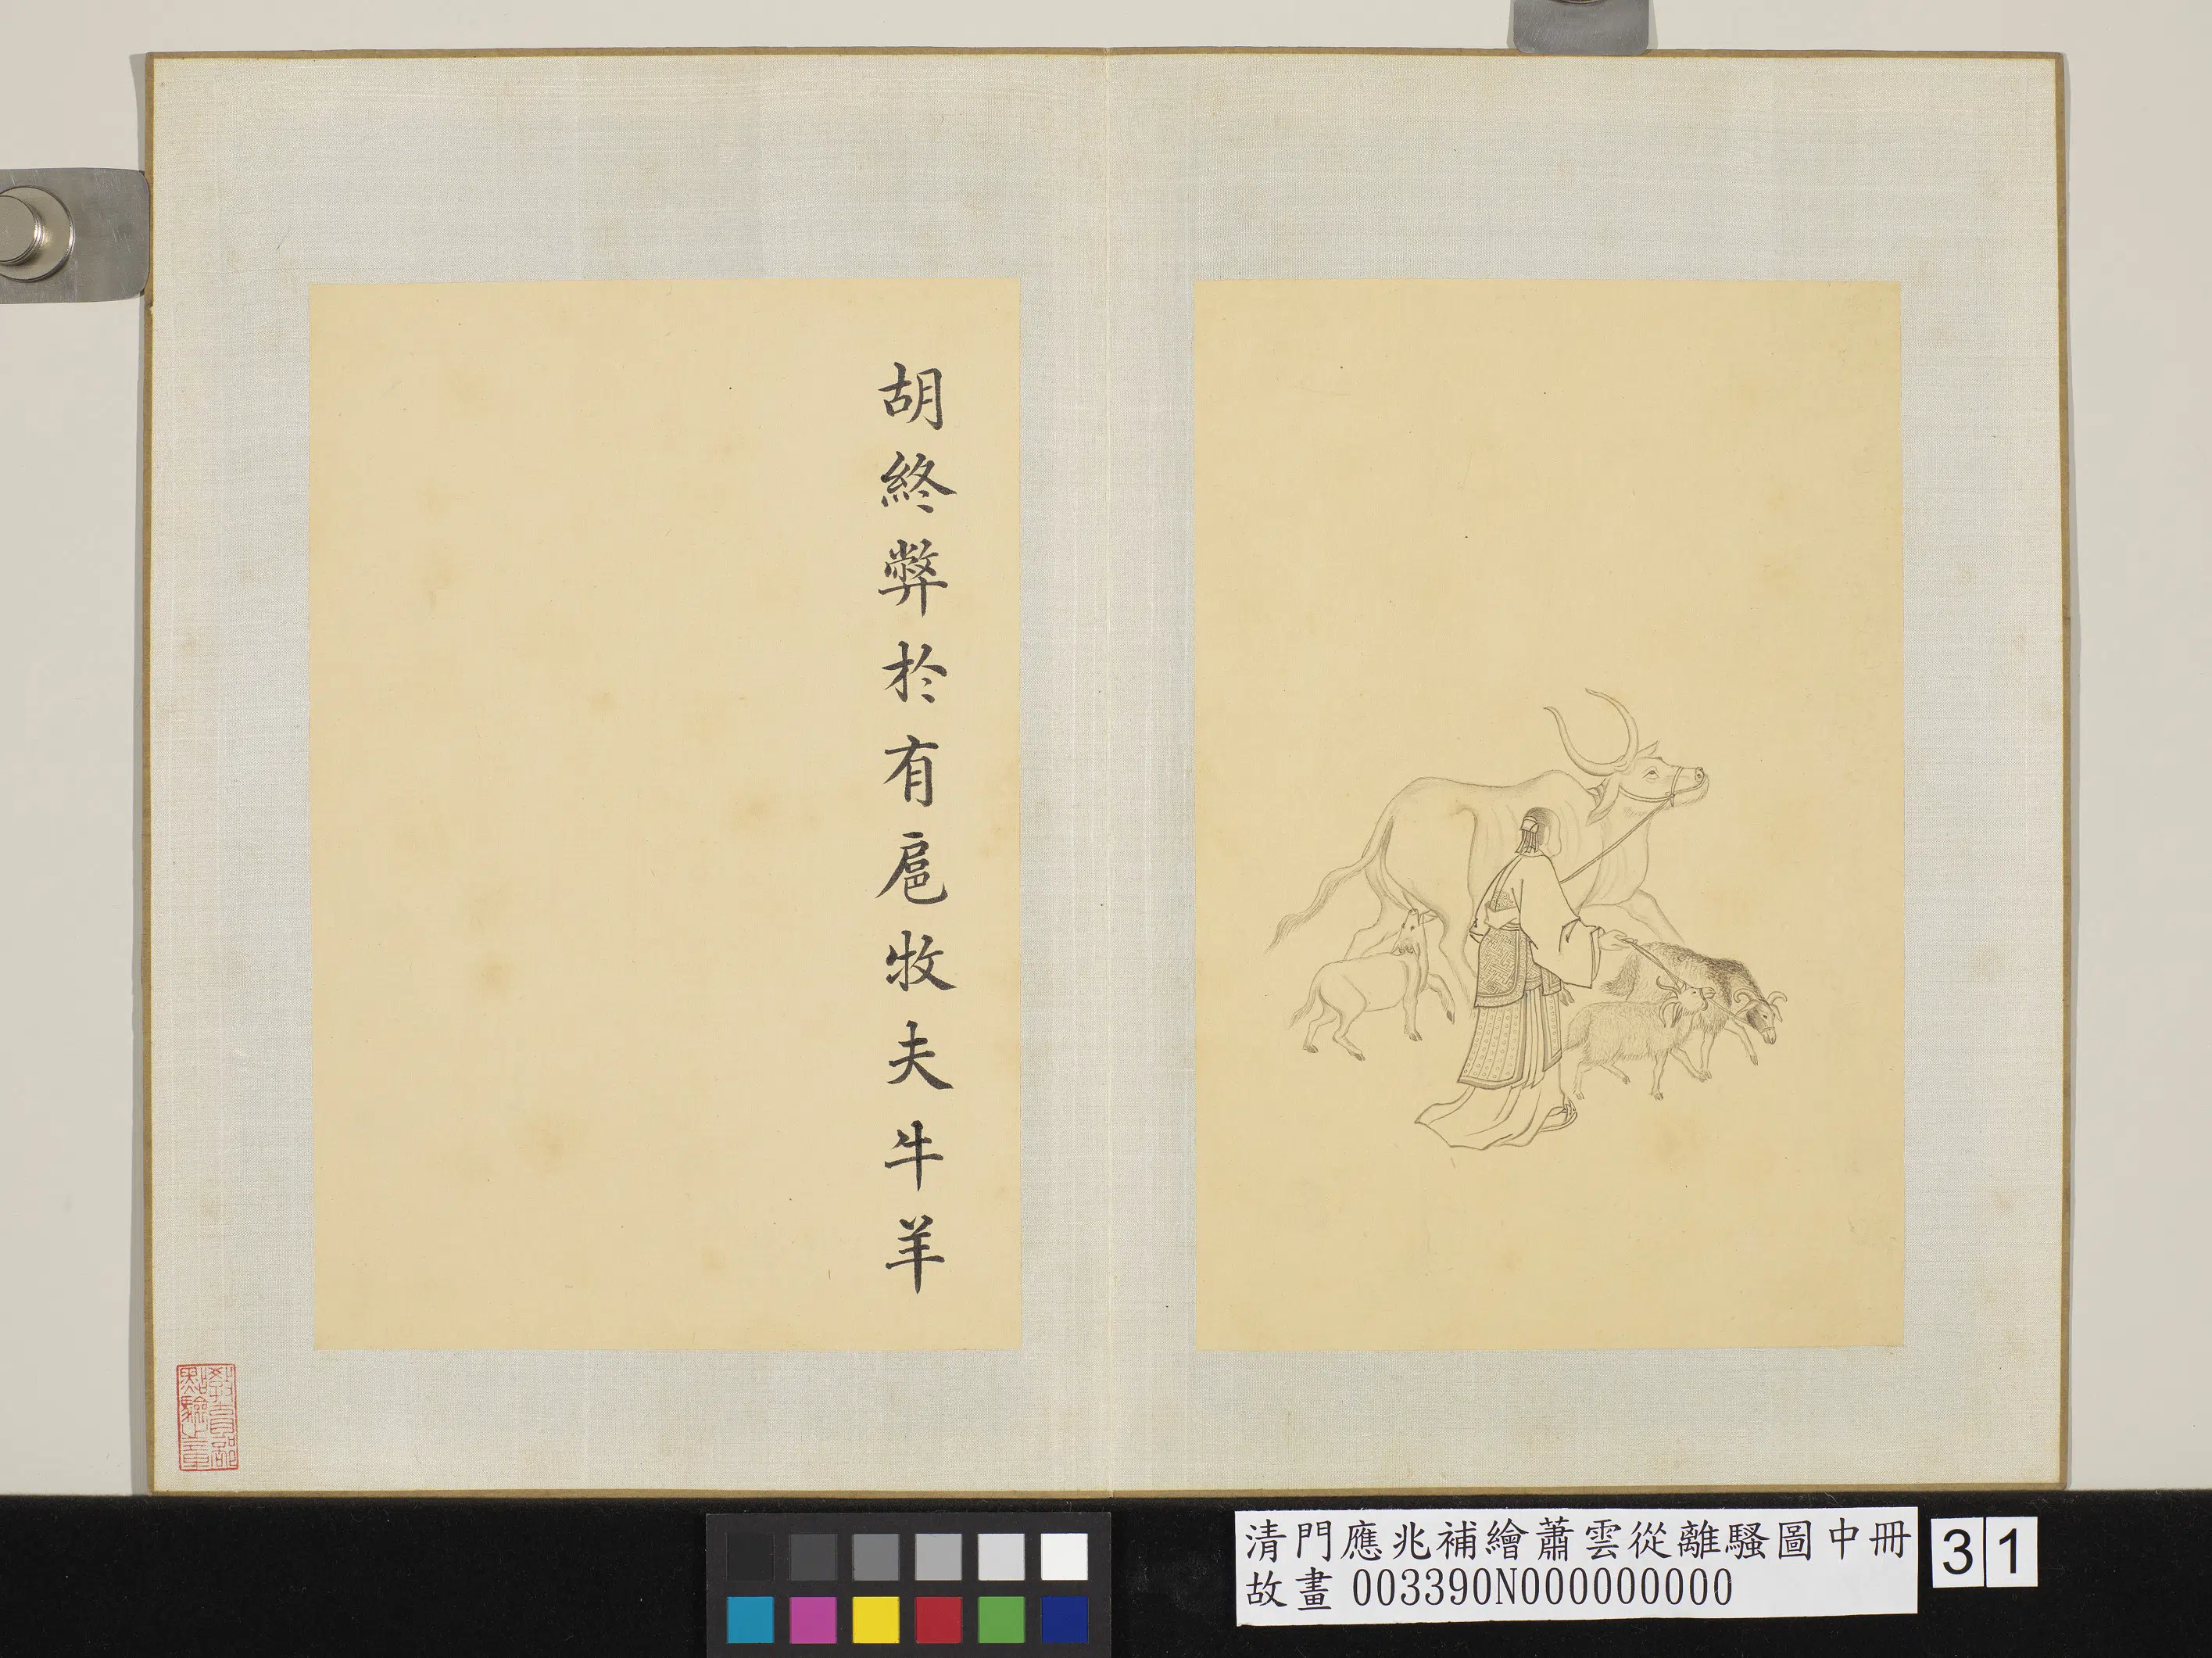 胡終弊於有扈牧夫牛羊
教育部
點驗之章
清門應兆補繪蕭雲從離騷圖中冊
故畫 003390N000000000
31